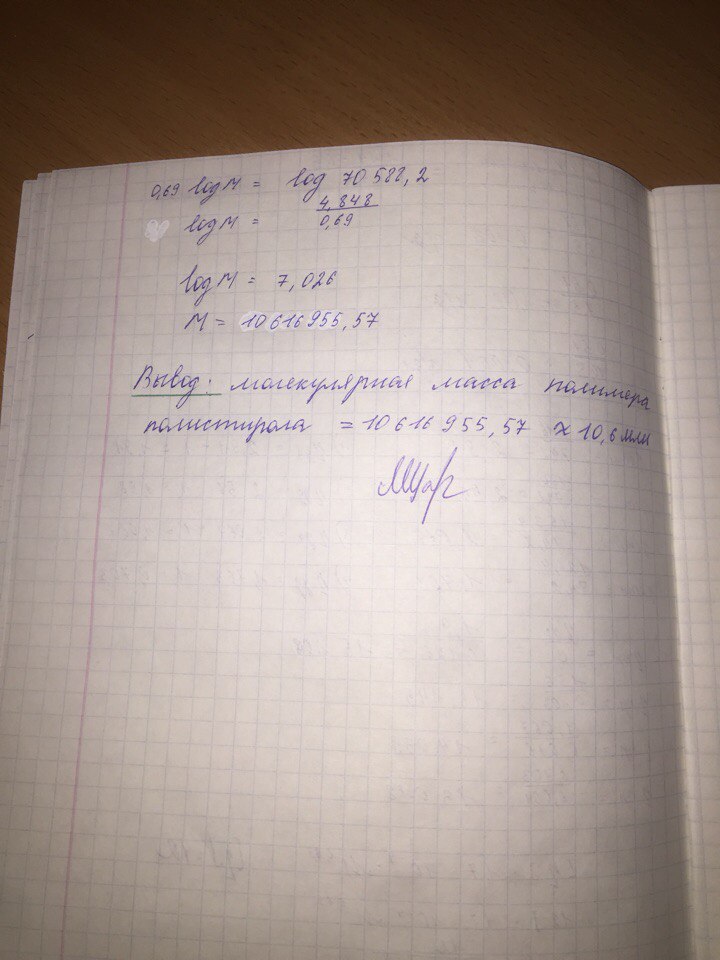 0,69 logM = log 70588,2
logM = 4,848
0,69
logM = 7,026
M = 10616955,57
Вывод: молекулярная масса полимера
полистирола = 10616955,57 ≈ 10,6 млн